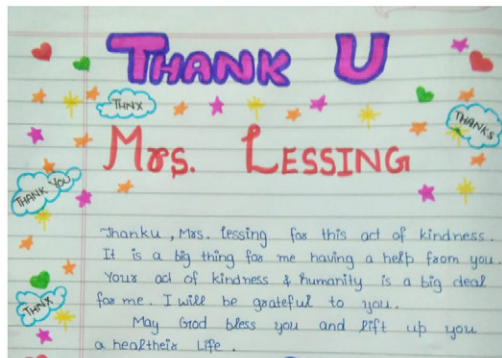 THANK U
THNX
THANKS
MRS. LESSING
THANK YOU
THNX
Thanku, Mrs. lessing for this act of kindness.
It is a big thing for me having a help from you.
Your act of kindness & humanity is a big deal
for me. I will be grateful to you.
May God bless you and lift up you
a healtheir life.